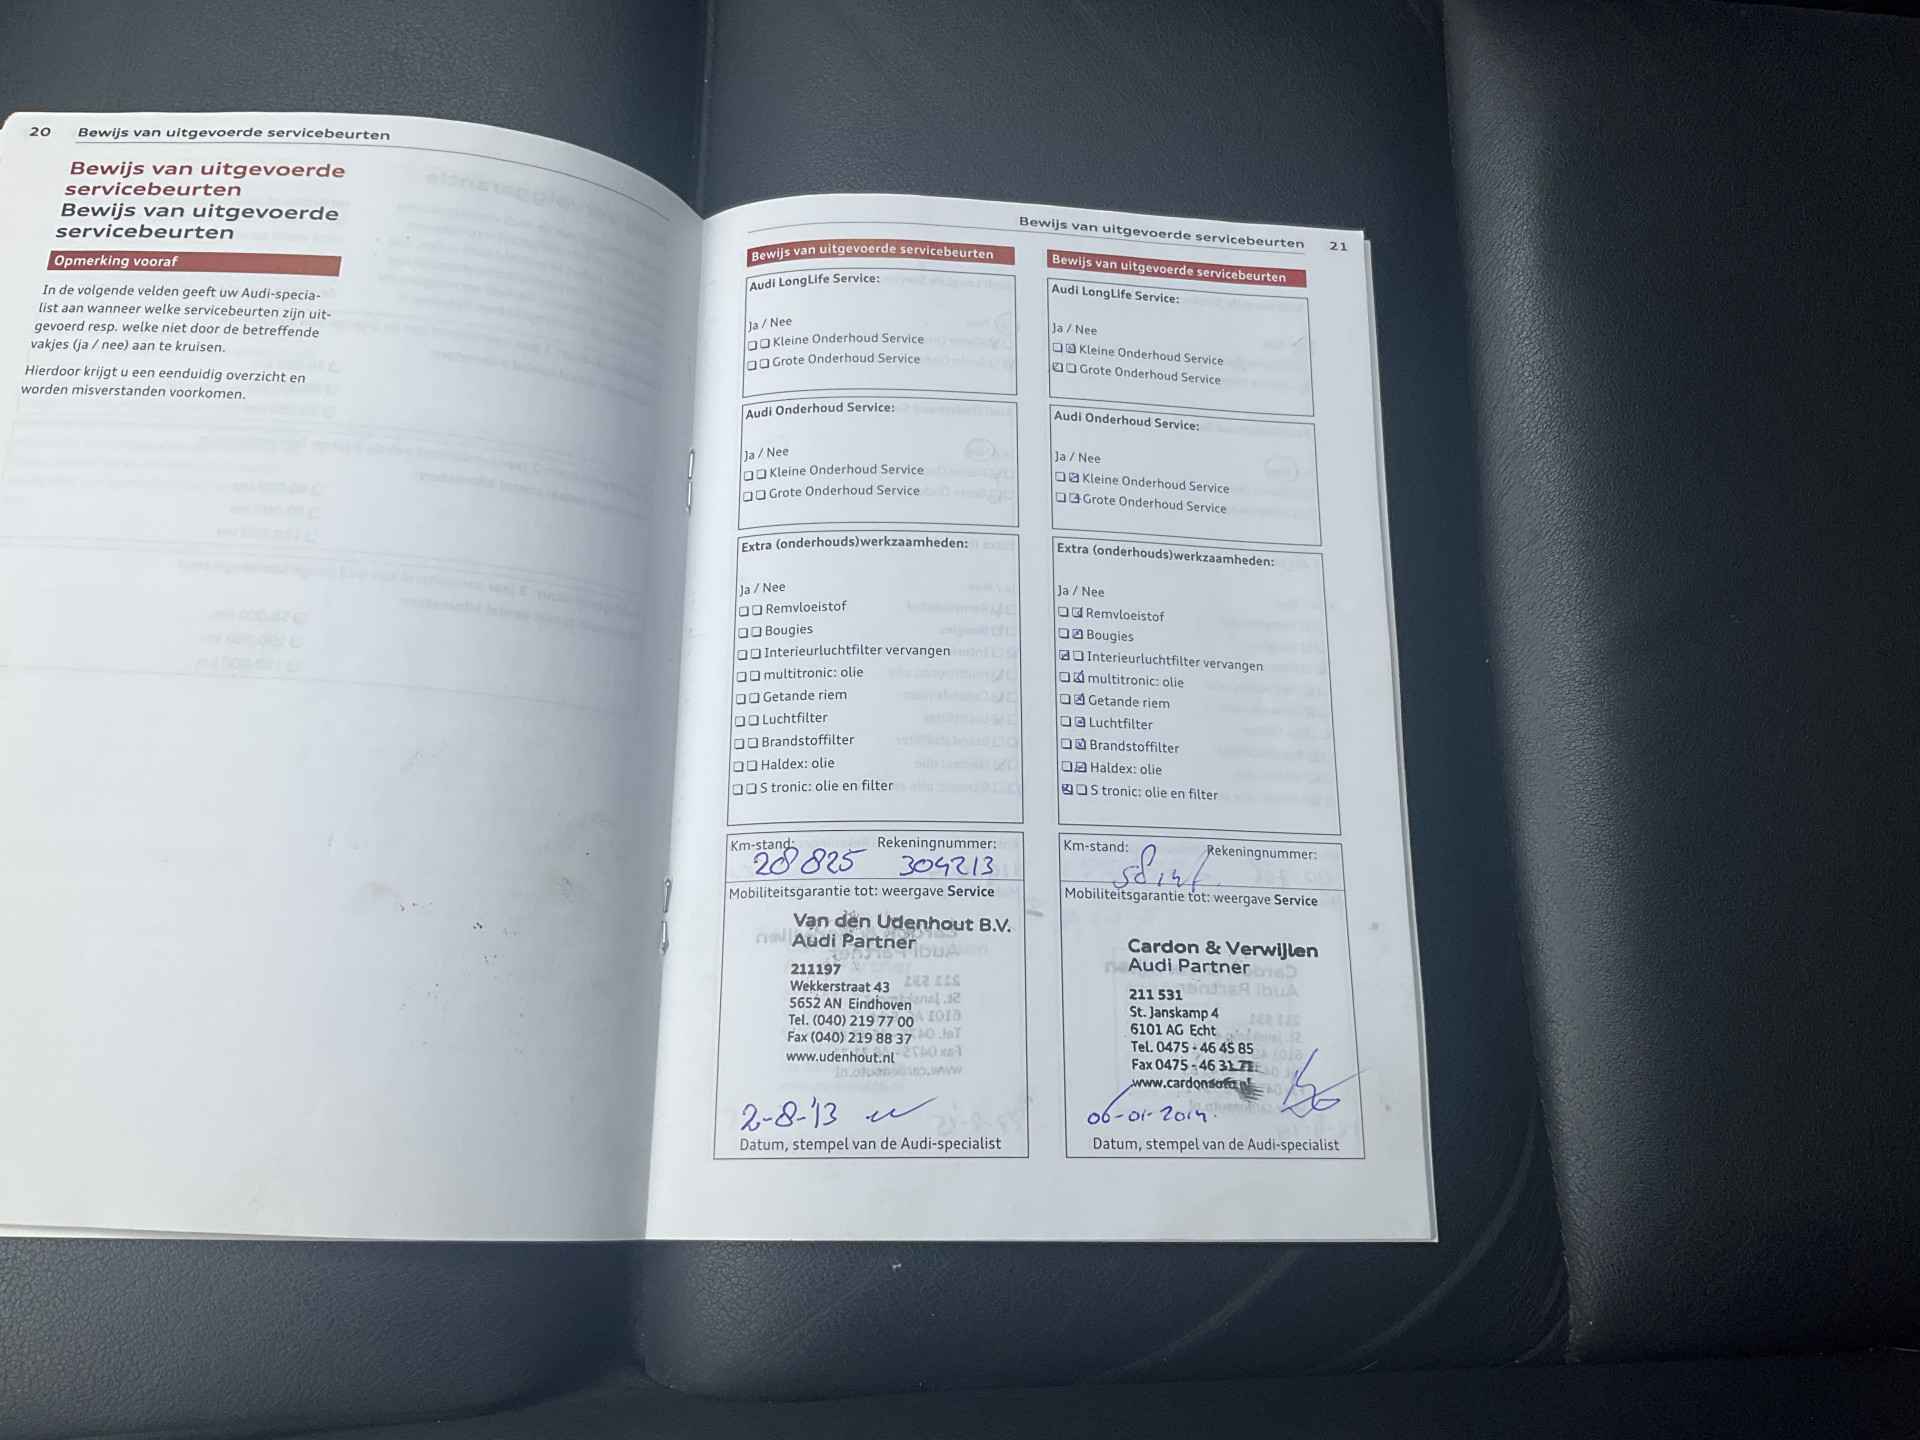 20 Bewijs van uitgevoerde servicebeurten
Bewijs van uitgevoerde
servicebeurten
Bewijs van uitgevoerde
servicebeurten
Opmerking vooraf
In de volgende velden geeft uw Audi-specia-
list aan wanneer welke servicebeurten zijn uit-
gevoerd resp. welke niet door de betreffende
vakjes (ja / nee) aan te kruisen.
Hierdoor krijgt u een eenduidig overzicht en
worden misverstanden voorkomen.
Bewijs van uitgevoerde servicebeurten 21
Bewijs van uitgevoerde servicebeurten
Audi LongLife Service:
Ja / Nee
Kleine Onderhoud Service
Grote Onderhoud Service
Audi Onderhoud Service:
Ja / Nee
Kleine Onderhoud Service
Grote Onderhoud Service
Extra (onderhouds)werkzaamheden:
Ja / Nee
Remvloeistof
Bougies
Interieurluchtfilter vervangen
multitronic: olie
Getande riem
Luchtfilter
Brandstoffilter
Haldex: olie
S tronic: olie en filter
Km-stand: Rekeningnummer:
28825 304213
Mobiliteitsgarantie tot: weergave Service
Van den Udenhout B.V.
Audi Partner
211197
Wekkerstraat 43
5652 AN Eindhoven
Tel. (040) 219 77 00
Fax (040) 219 88 37
www.udenhout.nl
2-8-'13
Datum, stempel van de Audi-specialist
Bewijs van uitgevoerde servicebeurten
Audi LongLife Service:
Ja / Nee
Kleine Onderhoud Service
Grote Onderhoud Service
Audi Onderhoud Service:
Ja / Nee
Kleine Onderhoud Service
Grote Onderhoud Service
Extra (onderhouds)werkzaamheden:
Ja / Nee
Remvloeistof
Bougies
Interieurluchtfilter vervangen
multitronic: olie
Getande riem
Luchtfilter
Brandstoffilter
Haldex: olie
S tronic: olie en filter
Km-stand: Rekeningnummer:
Mobiliteitsgarantie tot: weergave Service
Cardon & Verwijlen
Audi Partner
211 531
St. Janskamp 4
6101 AG Echt
Tel. 0475 - 46 45 85
Fax 0475 - 46 31 71
06-01-2014.
Datum, stempel van de Audi-specialist